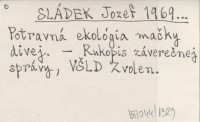 SLÁDEK Jozef 1969...
Potravná ekológia mačky
divej. – Rukopis záverečnej
správy, VŠLD Zvolen.